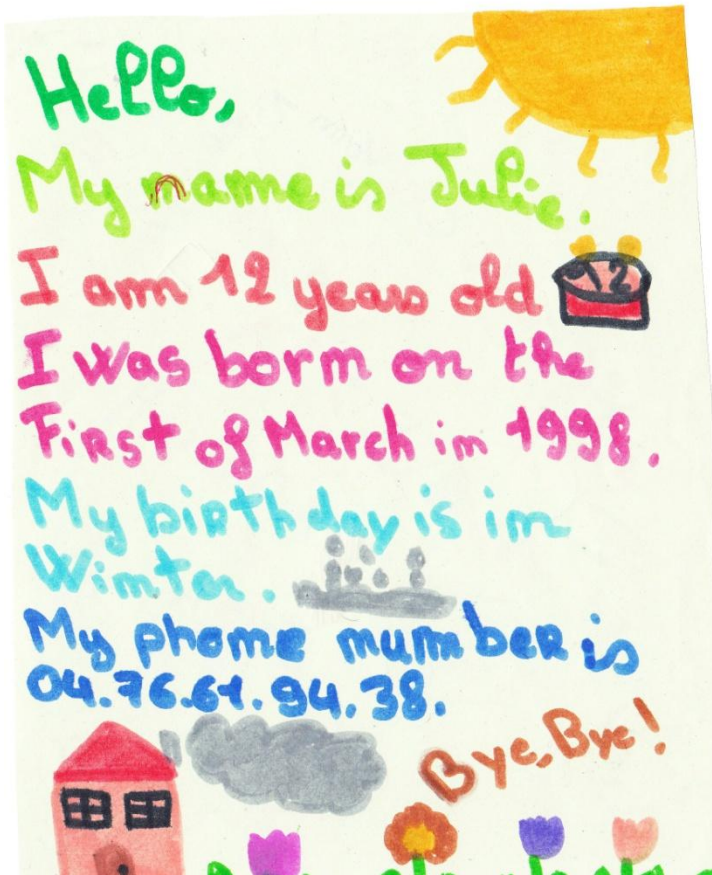 Hello,
My name is Julie.
I am 12 years old
12
I was born on the
First of March in 1998.
My birthday is in
Winter.
My phone number is
04.76.61.94.38.
Bye, Bye!